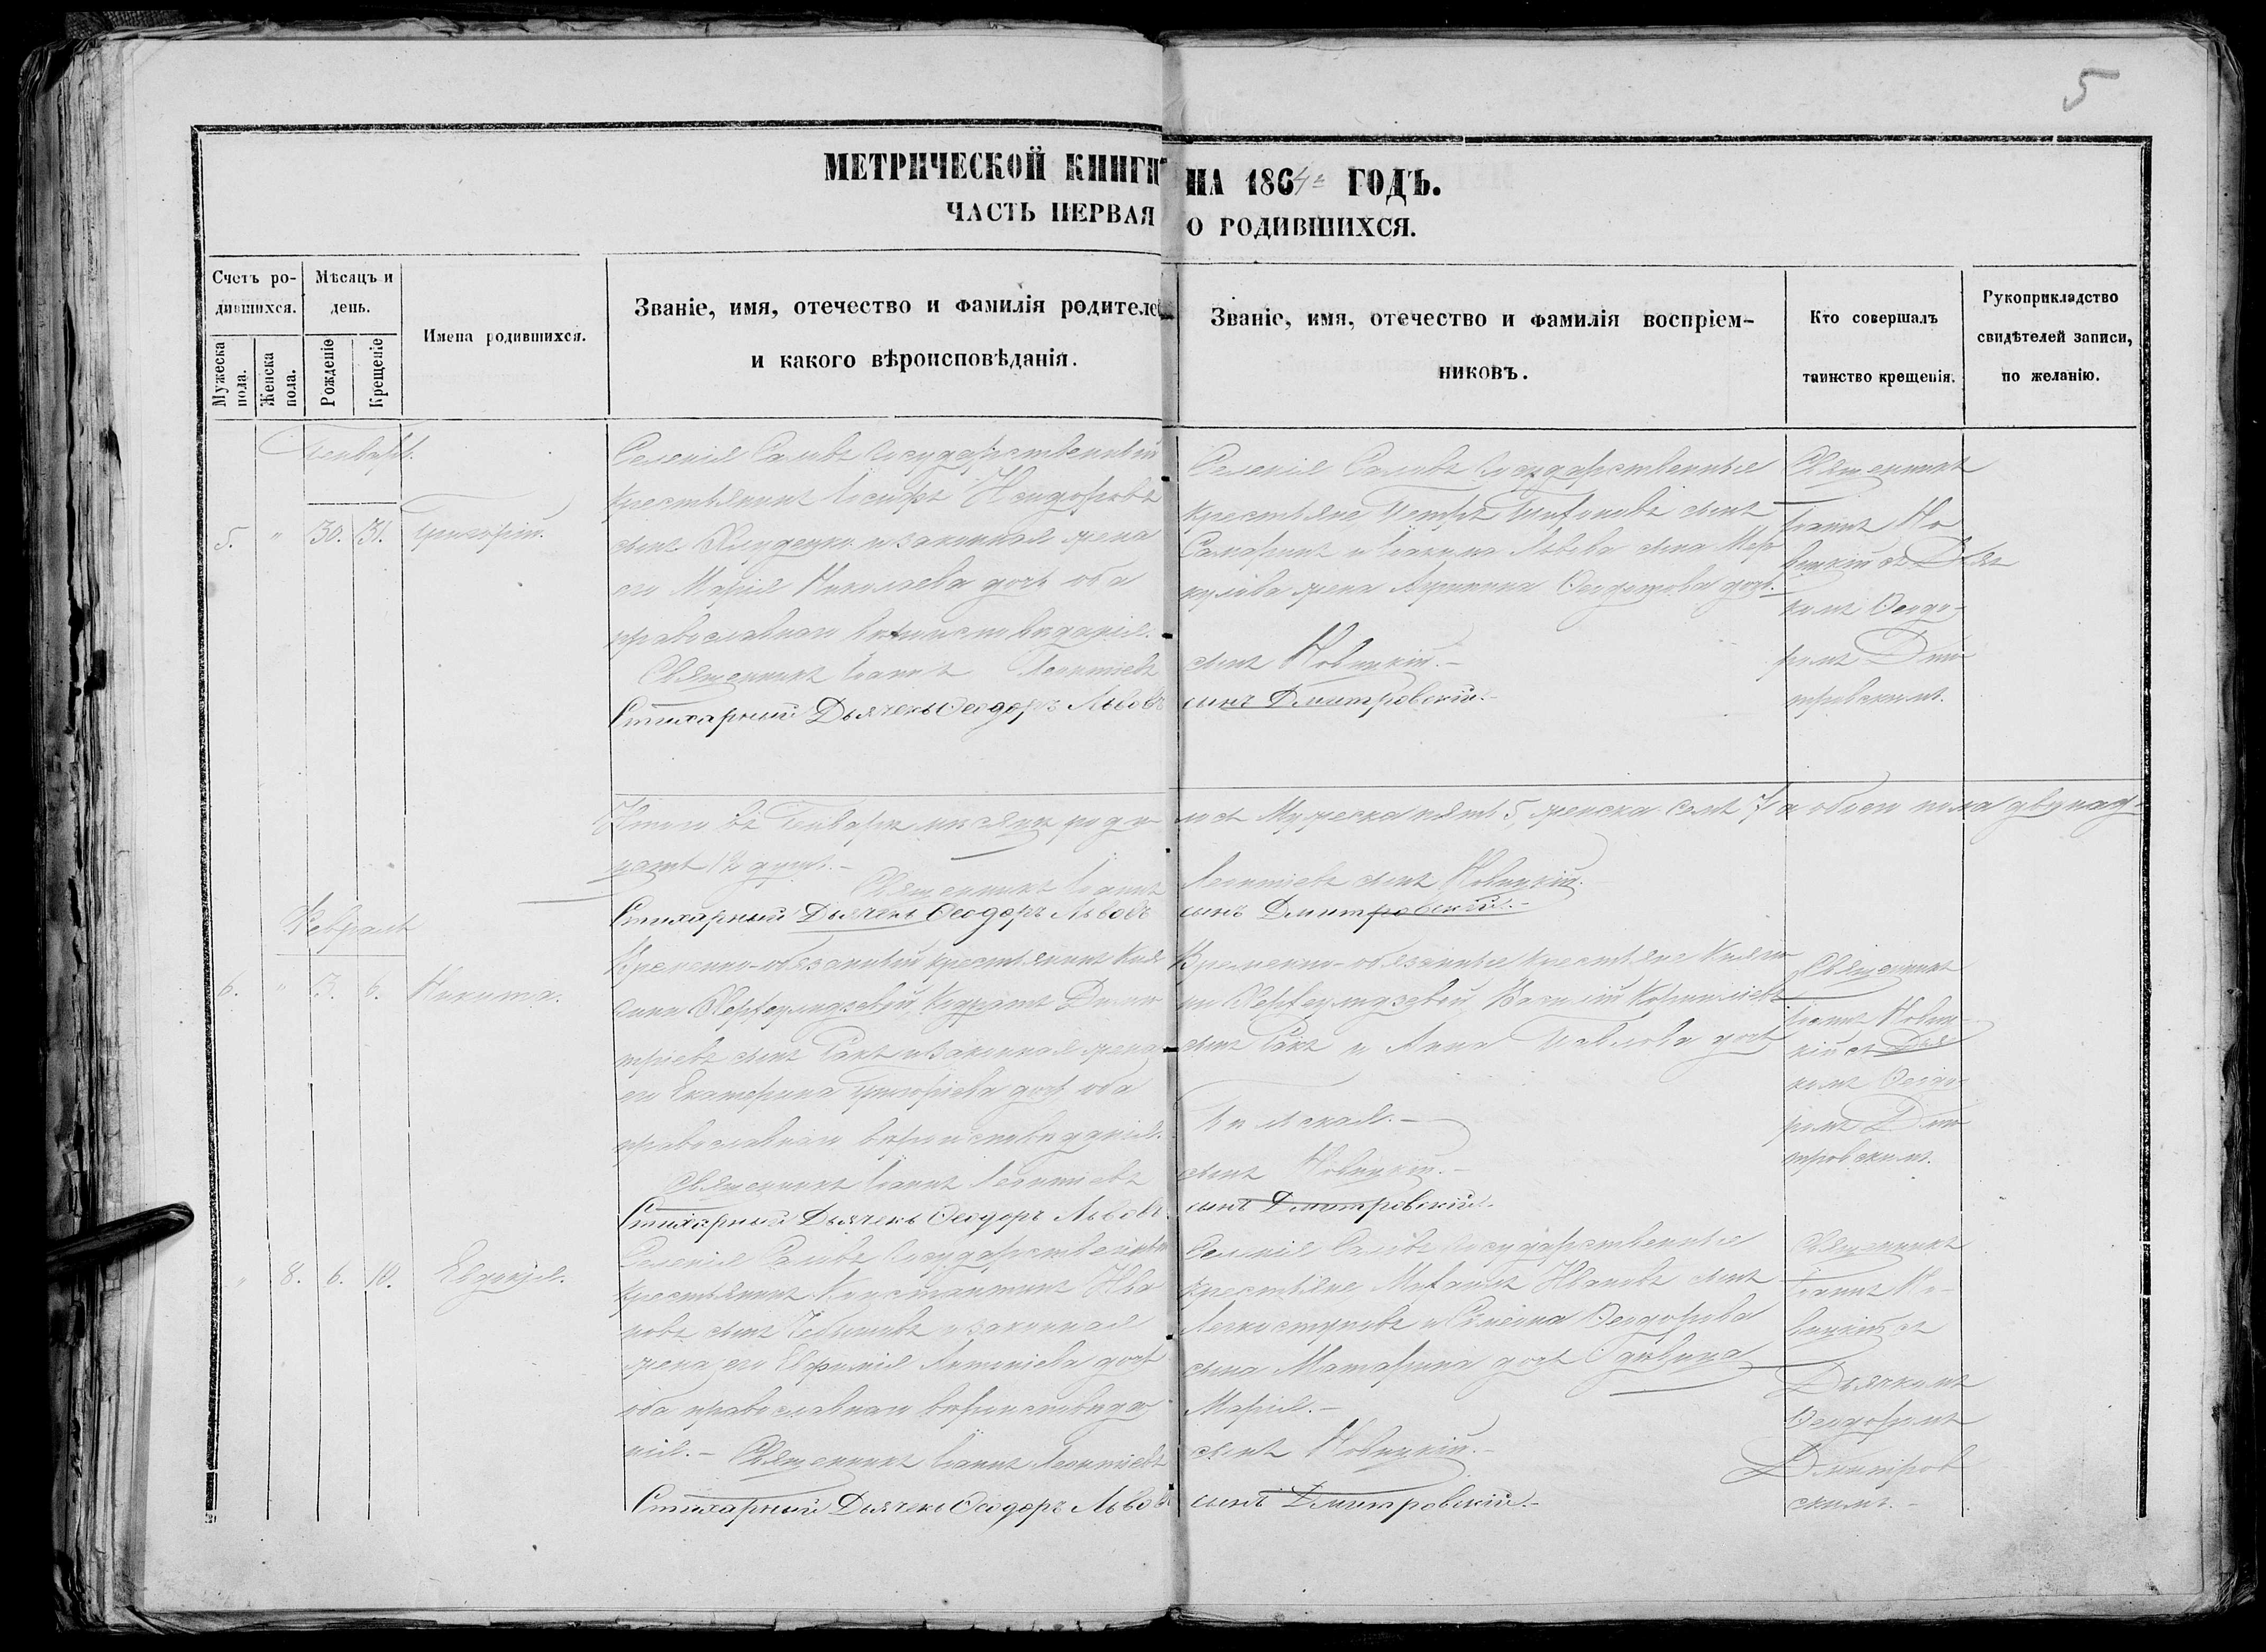 5
МЕТРИЧЕСКОЙ КНИГИ НА 1864й ГОДЪ.
ЧАСТЬ ПЕРВАЯ О РОДИВШИХСЯ.
Счетъ ро-
дившихся.
Мужеска
пола.
Женска
пола.
Мѣсяцъ и
день.
Рожденіе
Крещеніе
Имена родившихся.
Званіе, имя, отечество и фамилія родителей
и какого вѣроисповѣданія.
Званіе, имя, отечество и фамилія воспріем-
никовъ.
Кто совершалъ
таинство крещенія.
Рукоприкладство
свидѣтелей записи,
по желанію.
Генварь.
5. " 30. 31. Григорій.
Селенія Государственный
крестьянинъ Іосифъ
сынъ и законная жена
его Марія Николаева дочь оба
православнаго вѣроисповѣданія.
Священникъ Іоаннъ Леонтіевъ
Стихарный Дьячекъ Ѳеодоръ Львовъ
Селенія Государственные
крестьяне Петръ сынъ
и Львова сына
жена дочь.
сынъ Новицкій.-
сынъ Дмитровскій.-
Священникъ
Іоаннъ Но
вицкій съ Дьяч
комъ Ѳеодо-
ромъ Дми
тровскимъ.
Итого въ Генварѣ мѣсяцѣ роди-
лось Мужеска пять 5, женска семь 7, а обоего пола двѣнад-
цать 12 душъ.-
Священникъ Іоаннъ
Леонтіевъ сынъ Новицкій.
Стихарный Дьячекъ Ѳеодоръ Львовъ
сынъ Дмитровскій.-
Февраль
6. " 3. 6. Никита.
Временно-обязанный крестьянинъ Кня
гини Кодратъ Дими
тріевъ сынъ и законная жена
его Екатерина Григоріева дочь оба
православнаго вѣроисповѣданія.
Священникъ Іоаннъ Леонтіевъ
Стихарный Дьячекъ Ѳеодоръ Львовъ
Временно-обязанные крестьяне Княги
ни Василій Корниліевъ
сынъ и Анна Павлова дочь
сынъ Новицкій.-
сынъ Дмитровскій.
Священникъ
Іоаннъ Новиц-
кій съ Дьяч
комъ Ѳеодо-
ромъ Дми
тровскимъ.
" 8. 6. 10. Евдокія.
Селенія Государственный
крестьянинъ Константинъ Ива
новъ сынъ и законная
жена его Евфимія дочь
оба православнаго вѣроисповѣда
нія.- Священникъ Іоаннъ Леонтіевъ
Стихарный Дьячекъ Ѳеодоръ Львовъ
Селенія Государственные
крестьяне Михаилъ Ивановъ сынъ
Легкоступовъ и Ѳеодорова
сына дочь дѣвица
Марія.-
сынъ Новицкій.-
сынъ Дмитровскій.-
Священникъ
Іоаннъ Но-
вицкій съ
Дьячкомъ
Ѳеодоромъ
Дмитров
скимъ.-